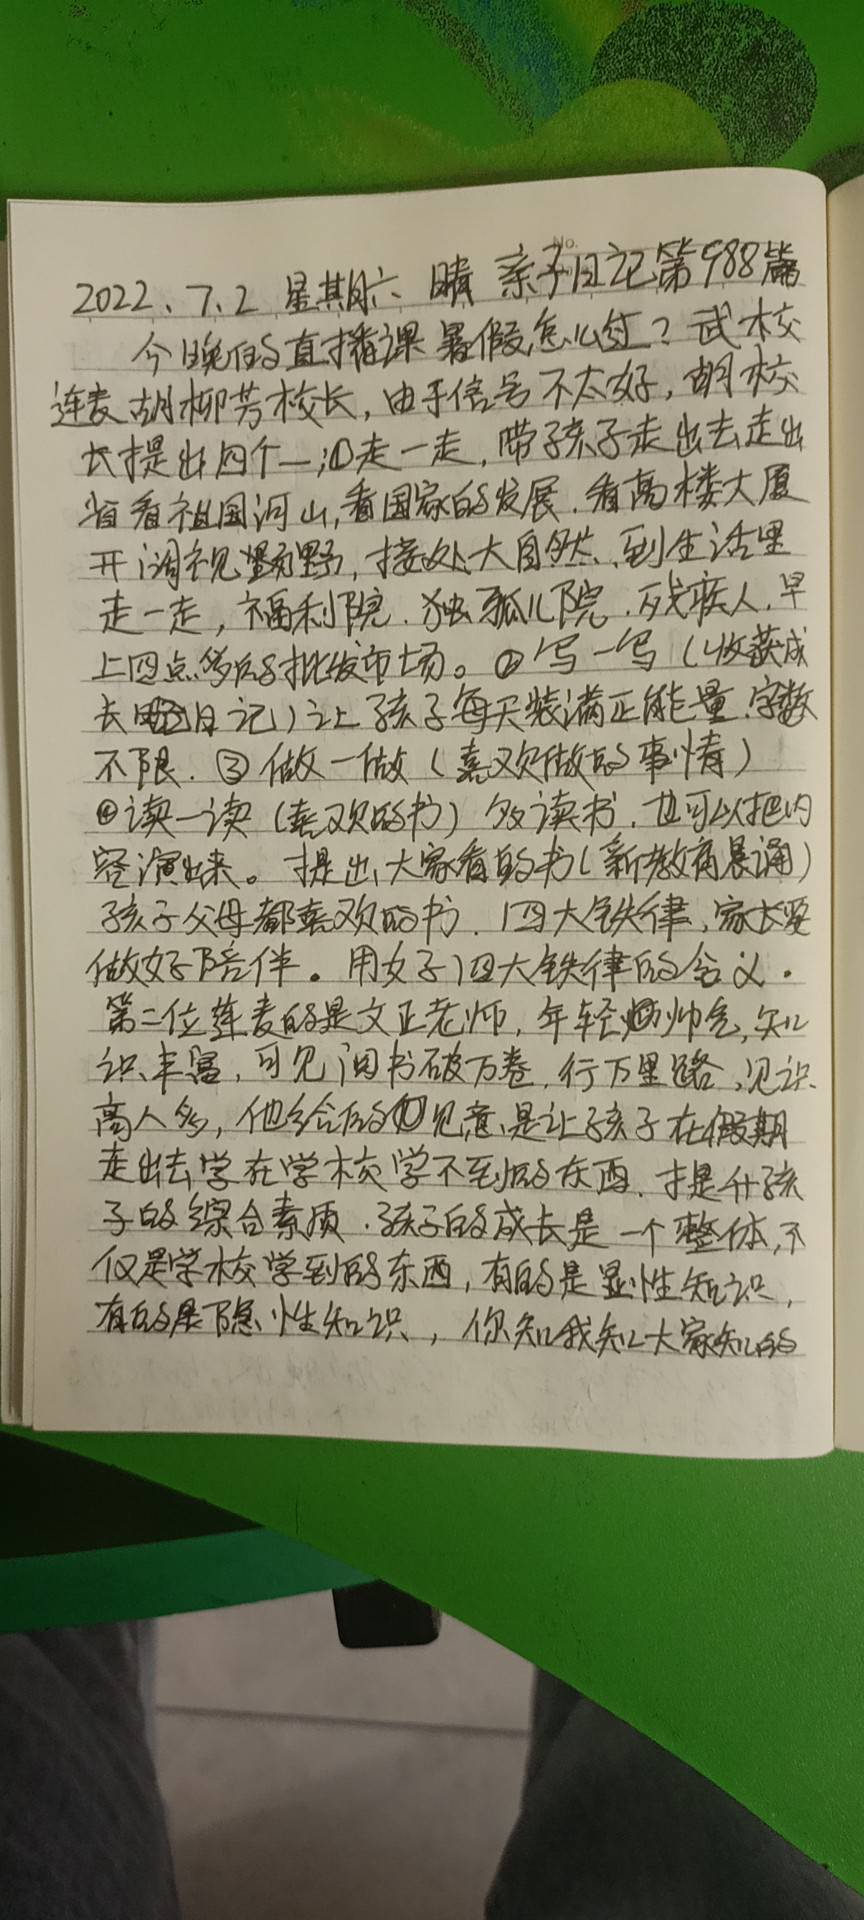 No.
2022、7.2 星期六 晴 亲子日记第988篇
今晚的直播课暑假怎么过？武校
连麦胡柳芳校长，由于信号不太好，胡校
长提出四个一；①走一走，带孩子走出去走出
省看祖国河山，看国家的发展．看高楼大厦
开阔视野，接处大自然、到生活里
走一走，福利院．孤儿院．残疾人．早
上四点多的批发市场。②写一写（收获成
长日记）让孩子每天装满正能量．字数
不限．③做一做（喜欢做的事情）
④读一读（喜欢的书）多读书．也可以把内
容演出来。提出大家看的书（新教育晨诵）
孩子父母都喜欢的书．四大铁律、家长要
做好陪伴。用好四大铁律的含义．
第二位连麦的是文正老师，年轻帅气，知
识丰富，可见阅书破万卷．行万里路、见识
高人多，他给的见意是让孩子在假期
走出去学在学校学不到的东西．提升孩
子的综合素质．孩子的成长是一个整体，不
仅是学校学到的东西，有的是显性知识，
有的是隐性知识，你知我知大家知的